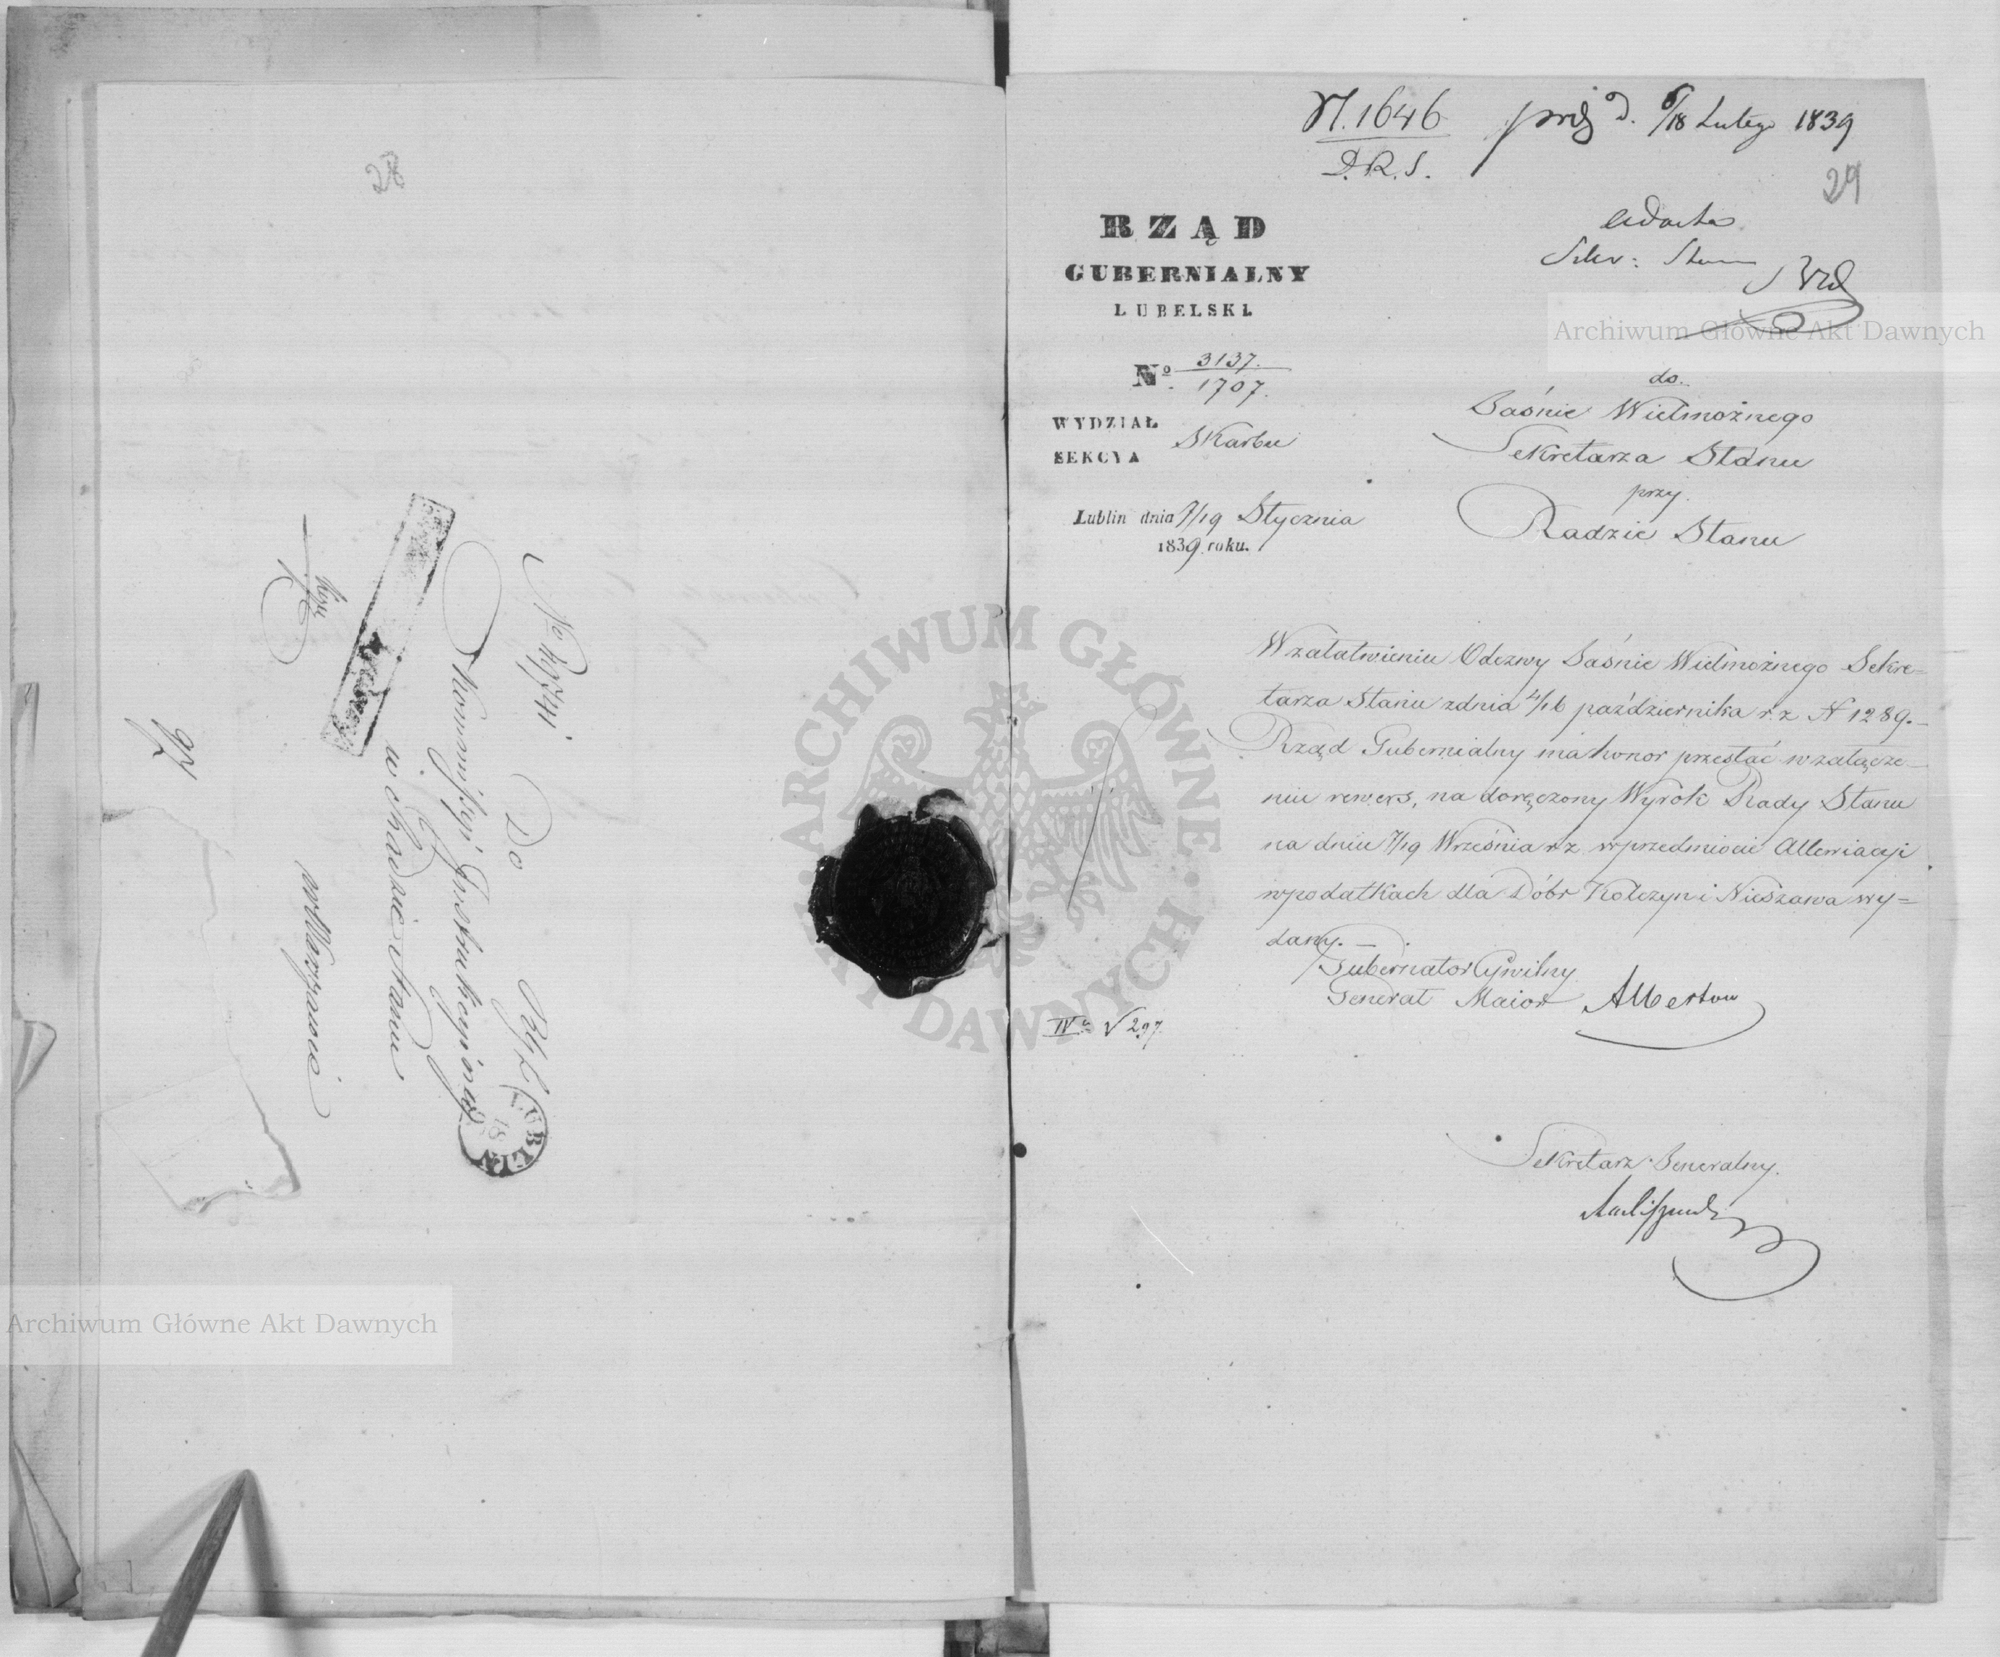 28
No 79741
Do
Kommissyi Instrukcyinej
w Radzie Stanu
w Warszawie
LUBLIN
18
97
N. 1646
D.R.S.
d. 6/18 Lutego 1839
29
ad acta
Sekr: Stanu
RZĄD
GUBERNIALNY
LUBELSKI.
No. 3137.
1707.
WYDZIAŁ
Skarbu
SEKCYA
Lublin dnia 7/19 Stycznia
1839 roku.
do.
Jaśnie Wielmożnego
Sekretarza Stanu
przy.
Radzie Stanu
W załatwieniu Odezwy Jaśnie Wielmożnego Sekre=
tarza Stanu z dnia 4/16 października r. z N 1289.—
Rząd Gubernialny ma honor przesłać w załącze—
niu rewers, na doręczony Wyrok Rady Stanu
na dniu 7/19 Września r.z. w przedmiocie Allewiacyi
w podatkach dla Dóbr Kolczyn i Nieszawa wy=
dany.—
Gubernator Cywilny
Generał Maior Albertow
IV 297.
Sekretarz Generalny.
ARCHIWUM GŁÓWNE AKT DAWNYCH
Archiwum Główne Akt Dawnych
Archiwum Główne Akt Dawnych